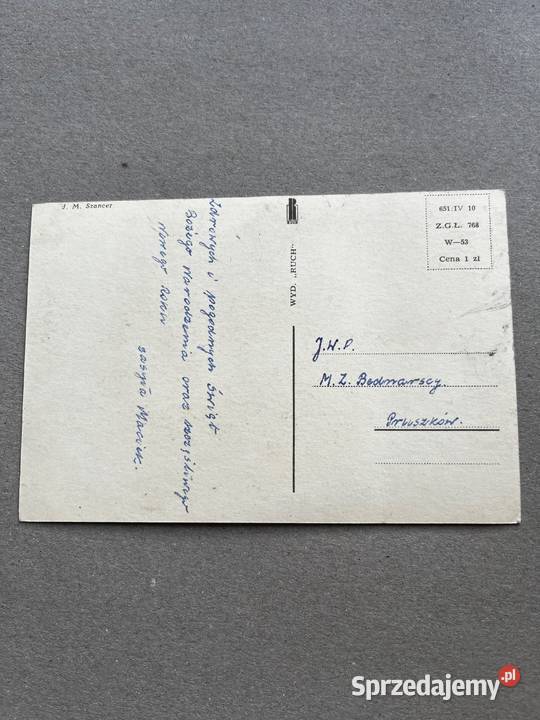 J. M. Szancer
Zdrowych i pogodnych Świąt
Bożego Narodzenia oraz szczęśliwego
Nowego Roku
zasyła Maciek.
WYD. „RUCH"
651/IV 10
Z.G.L. 768
W—53
Cena 1 zł
J.W.P.
M. Z. Bednarscy
Pruszków.
Sprzedajemy.pl